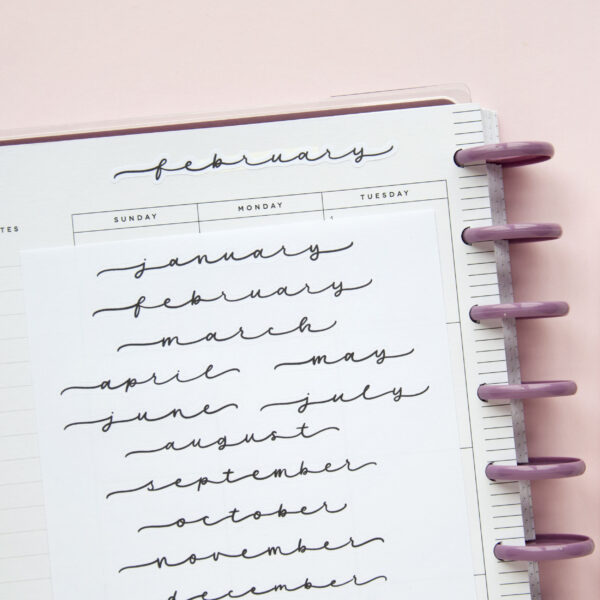 february
SUNDAY MONDAY TUESDAY
1
january
february
march
april may
june july
august
september
october
november
december